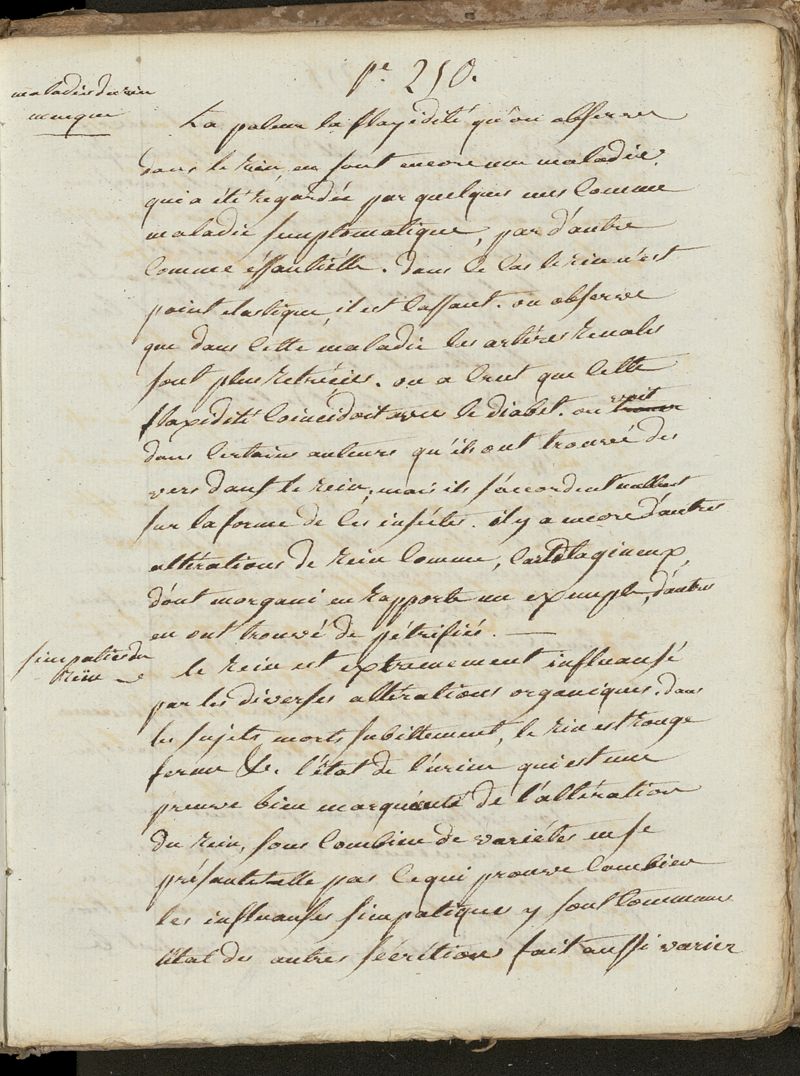 pe 250.
maladies du rein
manque
La paleur la flaxidité qu'on observe
dans le rein, en sont encore une maladie.
qui a été regardée par quelques uns comme
maladie simptomatique, par d'autre
comme éssantiélle. dans ce cas le rein n'est
point elastique, il est cassant. on observe
que dans cette maladie les artéres renales
sont plus retrécies. on a crut que cette
flaxidité coincidoit avec le diabet. on voit
dans certains auteurs qu'ils ont trouvé des
vers dans le rein; mais ils s'accordent
sur la forme de ces inséctes. il y a encore d'autres
altérations de rein comme, cartilagineux,
d'ont morgani en rapporte un exemple, d'autres
en ont trouvé de pétrifiés. —
simpaties du
rein
le rein est extrémement influansé
par les diverses altérations organiques. dans
les sujets morts subittement, le rein est rouge
ferme &c. l'état de l'urine qui est une
preuve bien marquante de l'altération
du rein, sous combien de variétés ne se
présante telle pas ce qui prouve combien
les influanses simpatiques y sont commune
l'état des autres séerétions fait aussi varier